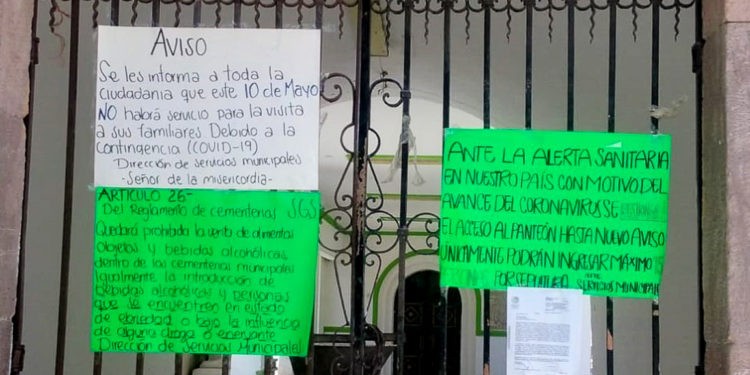 AVISO
Se les informa a toda la
ciudadania que este 10 de Mayo
NO habrá servicio para la visita
a sus familiares. Debido a la
contingencia (COVID-19)
Dirección de servicios municipales
-Señor de la misericordia-
ARTICULO 26-
Del Reglamento de cementerios SGS
Quedará prohibida la venta de alimentos
objetos y bebidas alcohólicas,
dentro de los cementerios municipales
Igualmente la introducción de
bebidas alcohólicas y personas
que se encuentren en estado
de ebriedad o bajo la influencia
de alguna droga o enervante
Dirección de Servicios Municipales
ANTE LA ALERTA SANITARIA
EN NUESTRO PAÍS CON MOTIVO DEL
AVANCE DEL CORONAVIRUS SE
EL ACCESO AL PANTEÓN HASTA NUEVO AVISO
UNICAMENTE PODRÁN INGRESAR MÁXIMO
POR SEPULTURA
SERVICIOS MUNICIPALES